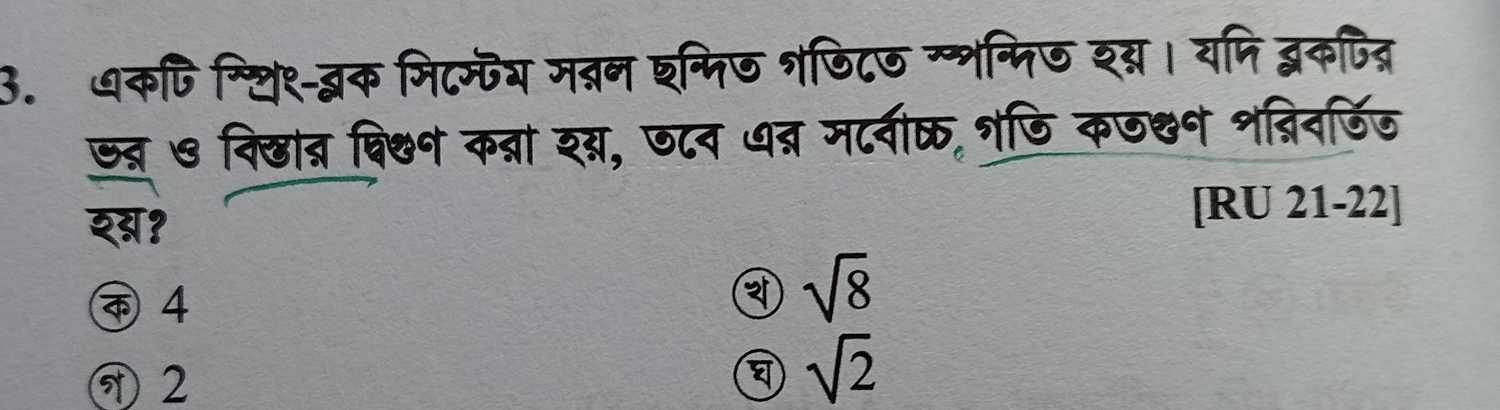 3. একটি স্প্রিং-ব্লক সিস্টেম সরল ছন্দিত গতিতে স্পন্দিত হয়। যদি ব্লকটির
ভর ও বিস্তার দ্বিগুণ করা হয়, তবে এর সর্বোচ্চ গতি কতগুণ পরিবর্তিত
হয়?
[RU 21-22]
ক 4
খ √8
গ 2
ঘ √2